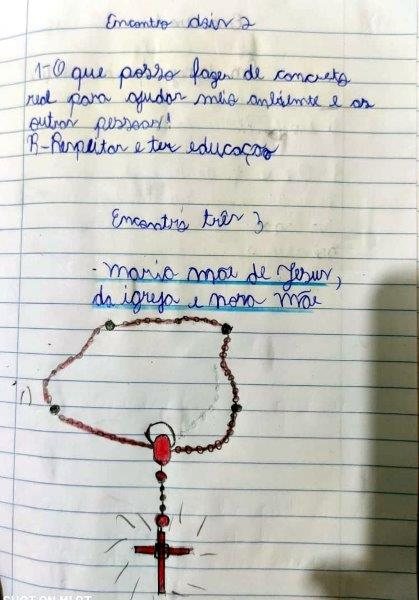 Encontro dois 2
1-O que posso fazer de concreto
real para ajudar meio ambiente e as
outras pessoas!
R-Respeitar e ter educação
Encontro três 3
- Maria mãe de Jesus,
da igreja e nossa Mãe
1)
SHOT ON MI 9T